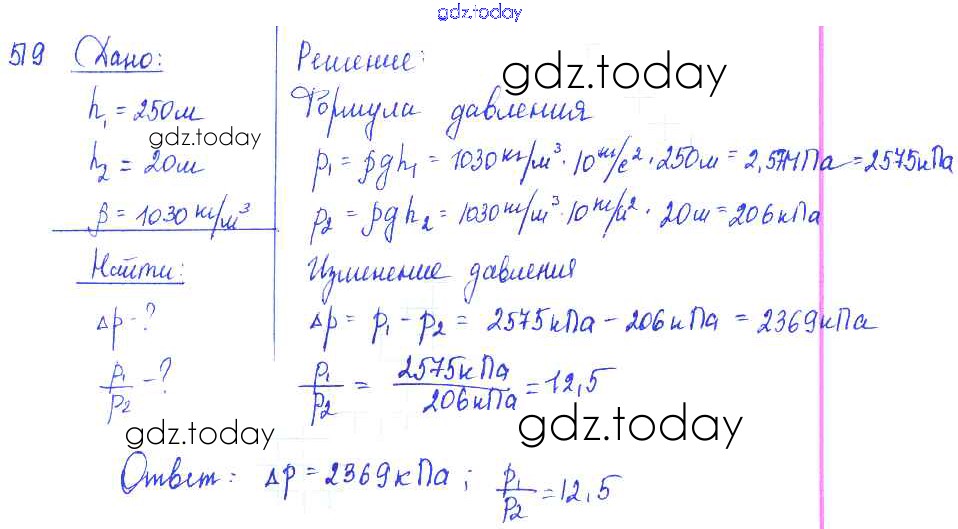 gdz.today
519 Дано:
h₁ = 250м
gdz.today
h₂ = 20м
ρ = 1030 кг/м³
Найти:
Δp - ?
p₁/p₂ - ?
Решение:
gdz.today
Формула давления
p₁ = ρgh₁ = 1030 кг/м³ · 10 м/с² · 250м = 2,575 МПа = 2575 кПа
p₂ = ρgh₂ = 1030 кг/м³ · 10 м/с² · 20м = 206 кПа
Изменение давления
Δp = p₁ - p₂ = 2575 кПа - 206 кПа = 2369 кПа
p₁/p₂ = 2575 кПа/206 кПа = 12,5
gdz.today
gdz.today
Ответ: Δp = 2369 кПа; p₁/p₂ = 12,5